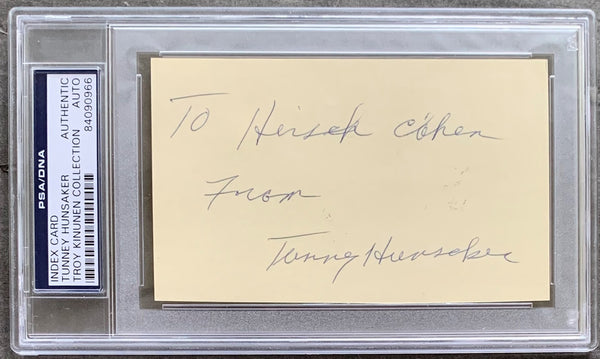 PSA/DNA
INDEX CARD
TUNNEY HUNSAKER AUTHENTIC
TROY KINUNEN COLLECTION AUTO
84090966
To Hersch Cohen
From
Tunney Hunsaker